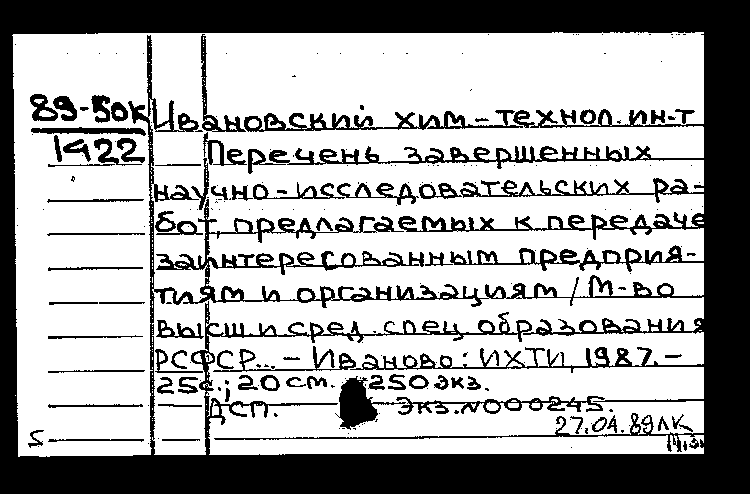 89-50к
1422
Ивановский хим-технол. ин-т
Перечень завершенных
научно-исследовательских ра-
бот, предлагаемых к передаче
заинтересованным предприя-
тиям и организациям / М-во
высш и сред. спец образования
РСФСР... - Иваново: ИХТИ, 1987. -
25с.; 20 см. 250 экз.
ДСП. Экз. N000245.
27.04.89ЛК
5